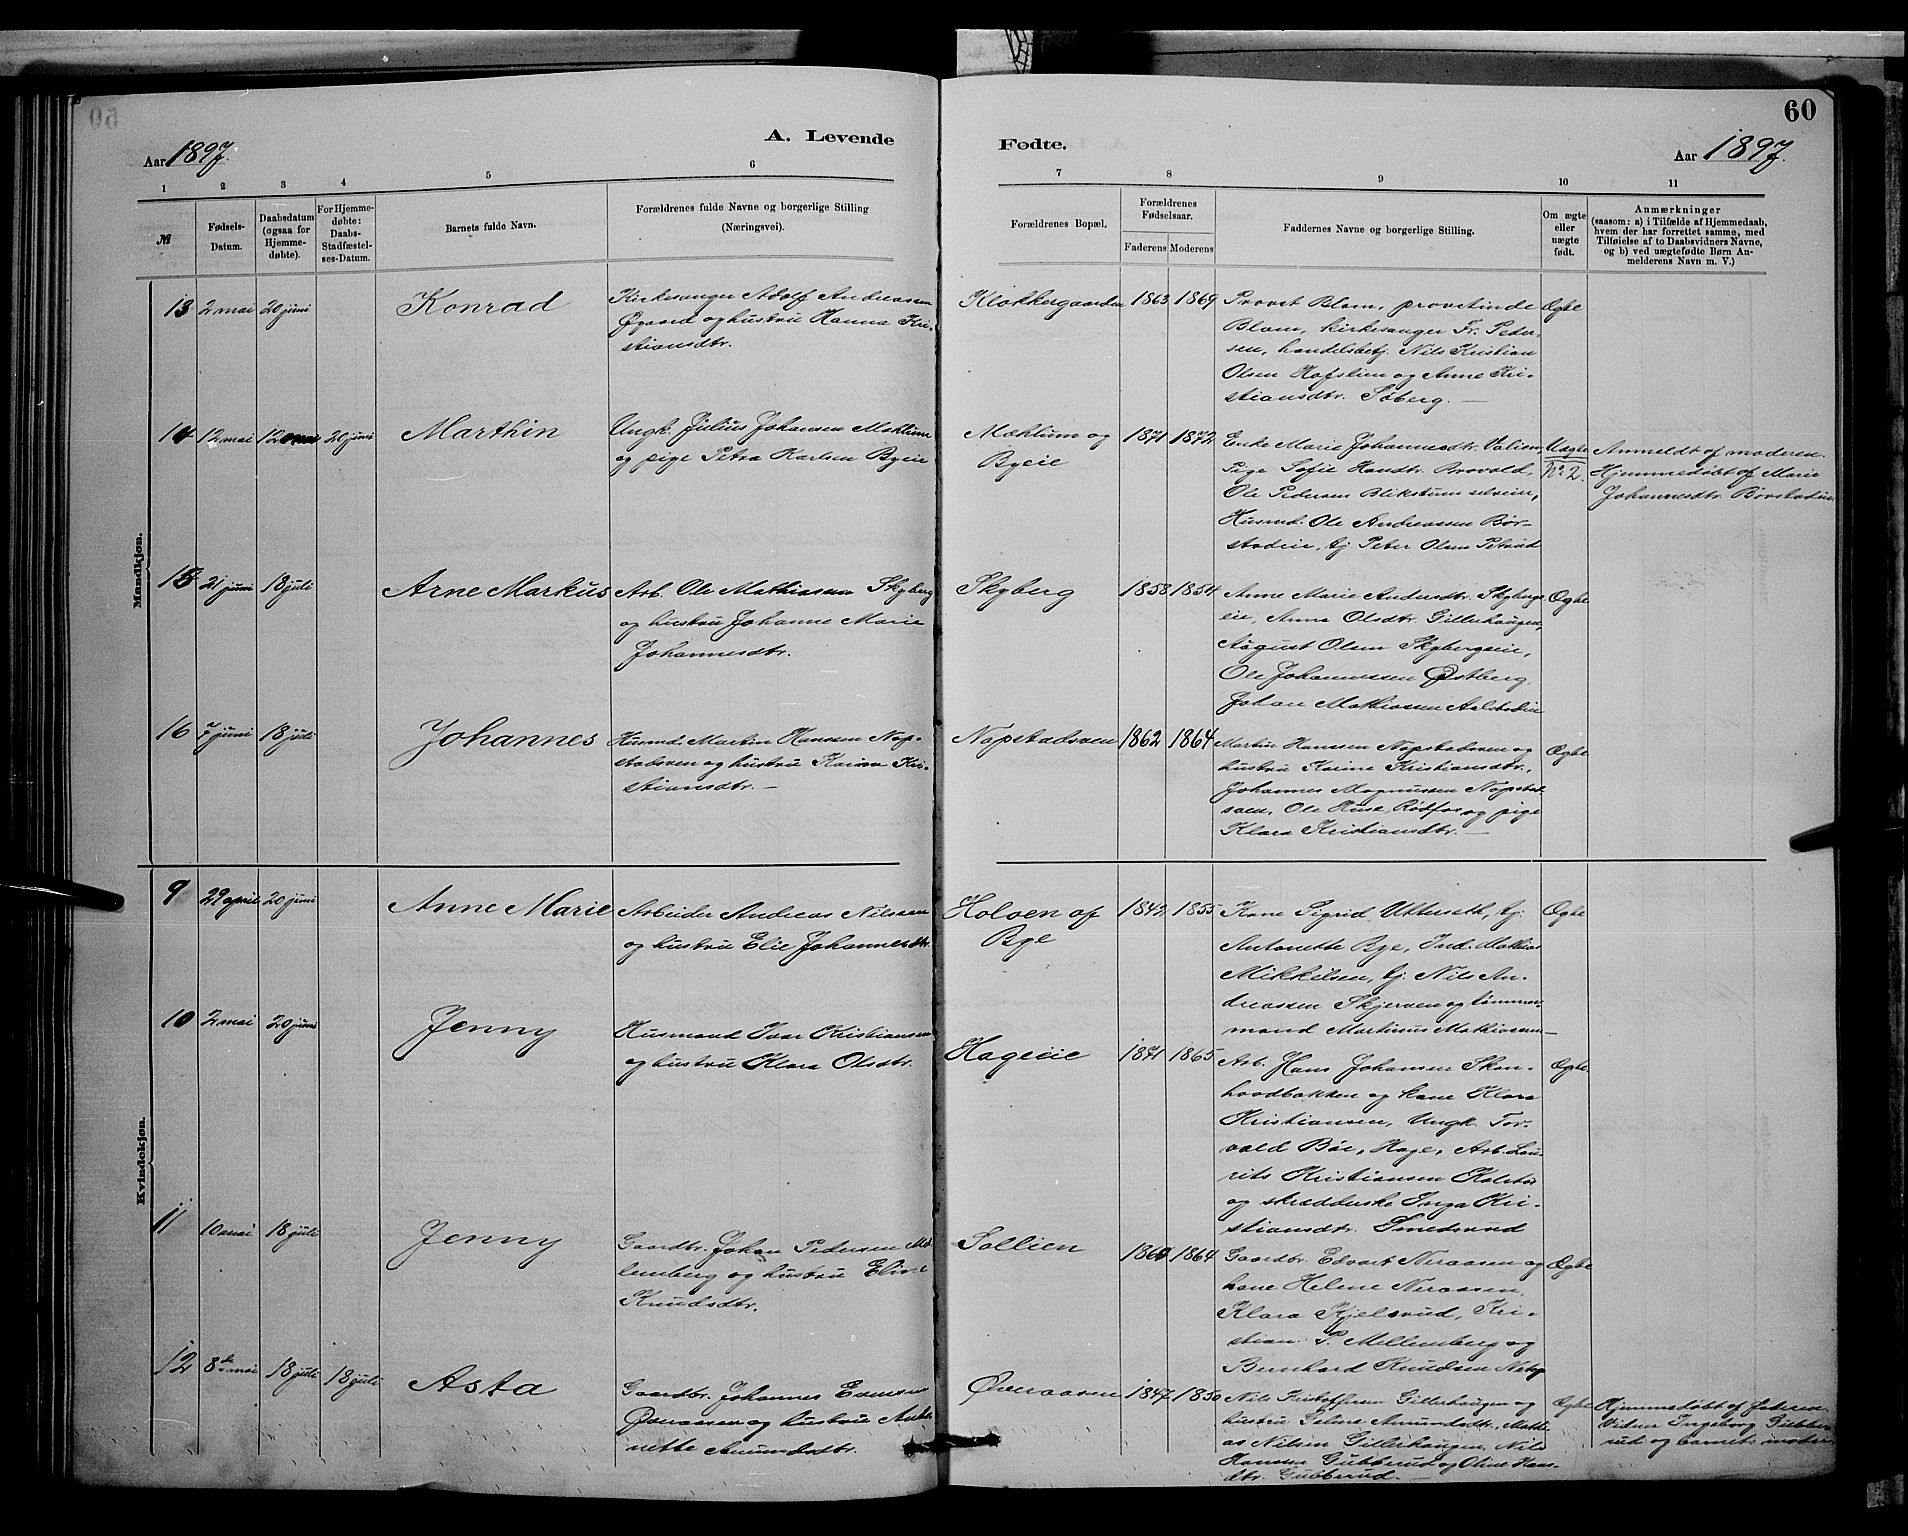 60
A. Levende Fødte.
Aar 1897.
Aar 1897.
1 2 3 4 5 6 7 8 9 10 11
№
Fødsels-Datum.
Daabsdatum (ogsaa for Hjemmedøbte).
For Hjemmedøbte: Daabs-Stadfæstelses-Datum.
Barnets fulde Navn.
Forældrenes fulde Navne og borgerlige Stilling (Næringsvei).
Forældrenes Bopæl.
Forældrenes Fødselsaar.
Faderens Moderens
Faddernes Navne og borgerlige Stilling.
Om ægte eller uægte født.
Anmærkninger
(saasom: a) i Tilfælde af Hjemmedaab,
hvem der har forrettet samme, med
Tilføielse af to Daabsvidners Navne,
og b) ved uægtefødte Børn Anmelderens Navn m. V.)
Mandkjøn.
13 2 mai 20 juni Konrad
Kirkesanger Adolf Andreassen
Øgaard og hustru Hanna Kri-
stiansdtr.
Klokkergaarden 1863 1869
Provst Blom, provstinde
Blom, kirkesanger Fr. Peder-
sen, handelsbetj. Nils Kristian
Olsen Hofslien og Anne Kri-
stiansdtr. Søberg. —
Ægte
14 12 mai 20 juni Marthin
Ungk. Julius Johansen Mæhlum
og pige Petra Karlsen Byeie
Mæhlum og
Byeie
1871 1872
Enke Marie Johannesdtr. Valien,
Pige Sofie Hansdtr. Brovold,
Ole Pedersen Blikstum selveier,
Husmd. Ole Andreassen Bør-
stadeie, tj. Peter Olsen Petrud
Uægte
No. 2.
Anmeldt af moderen.
Hjemmedøbt af Marie
Johannesdtr. Børstadeie
15 21 juni 18 juli Arne Markus
Arb. Ole Mathiassen Skyberg
og hustru Johanne Marie
Johannesdtr.
Skyberg 1858 1854
Anne Marie Andersdtr. Skybergs
eie, Anna Olsdtr. Gillerhaugen,
August Olsen Skybergseie,
Ole Johannessen Østberg,
Johan Mathiassen Aalstadeie
Ægte
16 7 juni 18 juli Johannes
Husmd. Martin Hanssen Nop-
stadsven og hustru Karine Kri-
stiansdtr. —
Nopstadsven 1862 1864
Martin Hanssen Nopstadsven og
hustru Karine Kristiansdtr.,
Johannes Magnussen Nopstad-
sven, Ole Huse, Rødfos og pige
Klara Kristiansdtr. —
Ægte
Kvindekjøn.
9 29 april 20 juni Anne Marie
Arbeider Andreas Nilssen
og hustru Elie Johannesdtr.
Holoen af
Bye
1842 1855
Kone Sigrid Utterseth, tj.
Antonette Bye, Ind. Mathias
Mikkelsen, tj. Nils An-
dreassen Skjerven og tømmer-
mand Martinus Mathiassen —
Ægte
10 2 mai 20 juni Jenny
Husmand Ivar Kristiansen
og hustru Klara Olsdtr.
Hageeie 1871 1865
Arb. Hans Johansen Skon-
hoodbakken og kone Klara
Kristiansen, Ungk. Tor-
vald Bøe, Hage, Arb. Lau-
rits Kristiansen Kolstad
og skrædderske Inga Kri-
stiansdtr. Smedsrud
Ægte
11 10 mai 18 juli Jenny
Gaardbr. Johan Pedersen Mel-
lemberg og hustru Eline
Knudsdtr.
Sollien 1860 1864
Gaardbr. Edvart Neraasen og
kone Helene Neraasen,
Klara Kjelsrud, Kri-
stian P. Mellemberg og
Bernhard Knudsen
Ægte
12 8de mai 18 juli 18 juli Asta
Gaardbr. Johannes Evensen
Øveraasen og hustru
nette Amundsdtr.
Øveraasen 1847 1850
Nils Kristoffersen Gillerhaugen og
hustru Seline Amundsdtr., Mathi-
as Nilsen Gillerhaugen, Nils
Hansen Gubberud og Oline Hans-
dtr. Gubberud. —
Ægte
Hjemmedøbt af faderen.
Vidner Ingeborg Gubbe-
rud og barnets moder